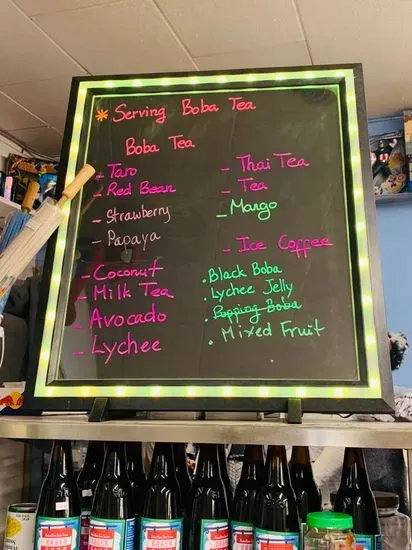 * Serving Boba Tea
Boba Tea
- Taro
- Red Bean
- Strawberry
- Papaya
- Coconut
- Milk Tea
- Avocado
- Lychee
- Thai Tea
- Tea
- Mango
- Ice Coffee
• Black Boba
• Lychee Jelly
• Popping Boba
• Mixed Fruit